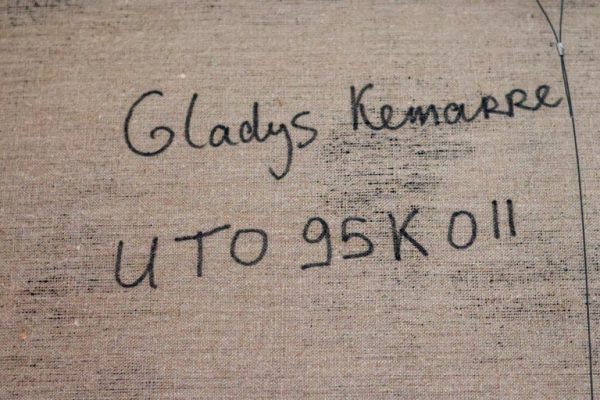 Gladys Kemarre
UTO 95K011